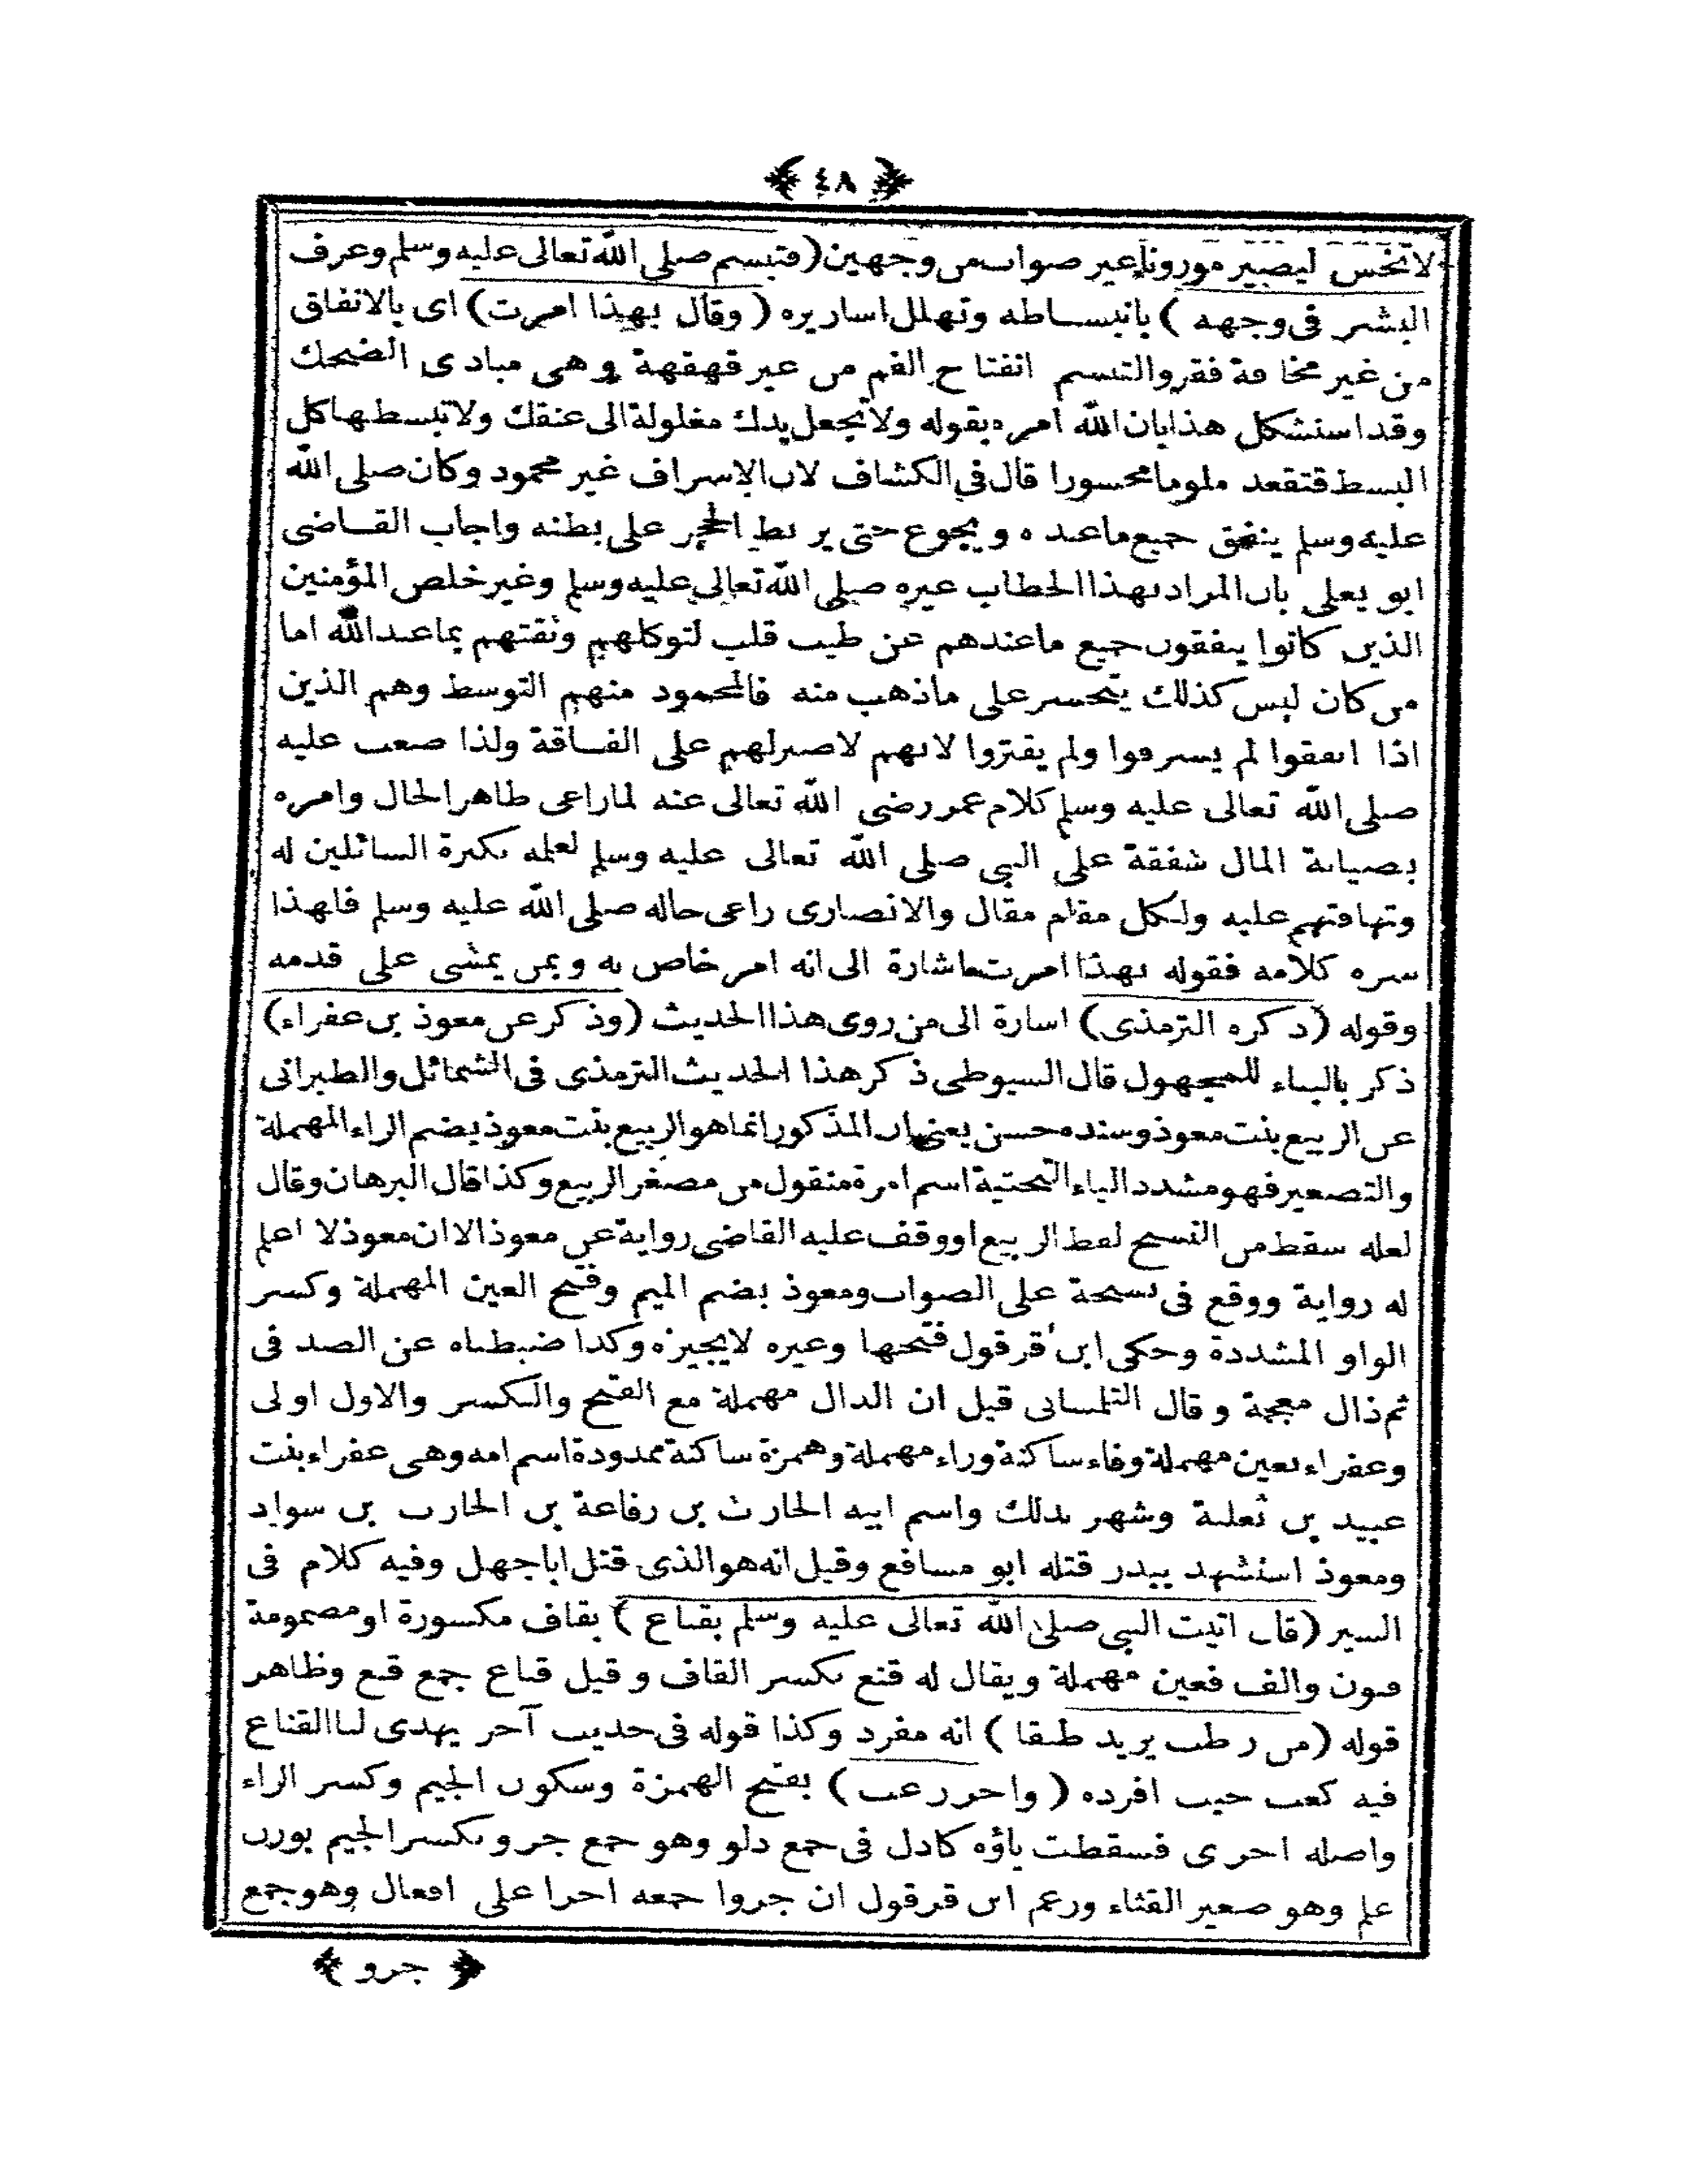 ﴿ ٤٨ ﴾
لا تخس ليصير موزونا غير صواب من وجهين (فتبسم صلى الله تعالى عليه وسلم وعرف
البشر فى وجهه) بانبساطه وتهلل اساريره (وقال بهذا امرت) اى بالانفاق
من غير مخافة فقر والتبسم انفتاح الفم من غير قهقهة وهى مبادى الضحك
وقد استشكل هذا بان الله امره بقوله ولا تجعل يدك مغلولة الى عنقك ولا تبسطها كل
البسط فتقعد ملوما محسورا قال فى الكشاف لان الاسراف غير محمود وكان صلى الله
عليه وسلم ينفق جميع ما عنده ويجوع حتى يربط الحجر على بطنه واجاب القاضى
ابو يعلى بان المراد بهذا الخطاب غيره صلى الله تعالى عليه وسلم وغير خلص المؤمنين
الذين كانوا ينفقون جميع ما عندهم عن طيب قلب لتوكلهم وثقتهم بما عند الله اما
من كان ليس كذلك يتحسر على ما ذهب منه فالمحمود منهم التوسط وهم الذين
اذا انفقوا لم يسرفوا ولم يقتروا لانهم لا صبر لهم على الفاقة ولذا صعب عليه
صلى الله تعالى عليه وسلم كلام عمر رضى الله تعالى عنه لما راعى ظاهر الحال وامره
بصيانة المال شفقة على النبى صلى الله تعالى عليه وسلم لعلمه بكثرة السائلين له
وتهافتهم عليه ولكل مقام مقال والانصارى راعى حاله صلى الله عليه وسلم فلهذا
سره كلامه فقوله بهذا امرت اشارة الى انه امر خاص به وبمن يمشى على قدمه
وقوله (ذكره الترمذى) اشارة الى من روى هذا الحديث (وذكر عن معوذ بن عفراء)
ذكر بالبناء للمجهول قال السيوطى ذكر هذا الحديث الترمذى فى الشمائل والطبرانى
عن الربيع بنت معوذ وسنده حسن يعنى ان المذكور انما هو الربيع بنت معوذ بضم الراء المهملة
والتصغير فهو مشدد الياء التحتية اسم امرة منقول من مصغر الربيع وكذا قال البرهان وقال
لعله سقط من النسخ لفظ الربيع او وقف عليه القاضى رواية عن معوذ الا ان معوذ لا اعلم
له رواية ووقع فى نسخة على الصواب ومعوذ بضم الميم وفتح العين المهملة وكسر
الواو المشددة وحكى ابن قرقول فتحها وغيره لا يجيزه وكذا ضبطناه عن الصد فى
ثم ذال معجمة وقال التلمسانى قيل ان الدال مهملة مع الفتح والكسر والاول اولى
وعفراء بعين مهملة وفاء ساكنة وراء مهملة وهمزة ساكنة ممدودة اسم امه وهى عفراء بنت
عبيد بن ثعلبة وشهر بذلك واسم ابيه الحارث بن رفاعة بن الحارث بن سواد
ومعوذ استشهد ببدر قتله ابو مسافع وقيل انه هو الذى قتل ابا جهل وفيه كلام فى
السير (قال اتيت النبى صلى الله تعالى عليه وسلم بقناع) بقاف مكسورة او مضمومة
فنون والف فعين مهملة ويقال له قنع بكسر القاف وقيل قناع جمع قنع وظاهر
قوله (من رطب يريد طبقا) انه مفرد وكذا قوله فى حديث آخر يهدى لنا القناع
فيه كعب حيث افرده (واجر زغب) بفتح الهمزة وسكون الجيم وكسر الراء
واصله اجرى فسقطت ياؤه كادل فى جمع دلو وهو جمع جرو بكسر الجيم بوزن
علم وهو صغير القثاء وزعم ابن قرقول ان جروا جمعه اجرا على افعال وهو جمع
﴿ جرو ﴾